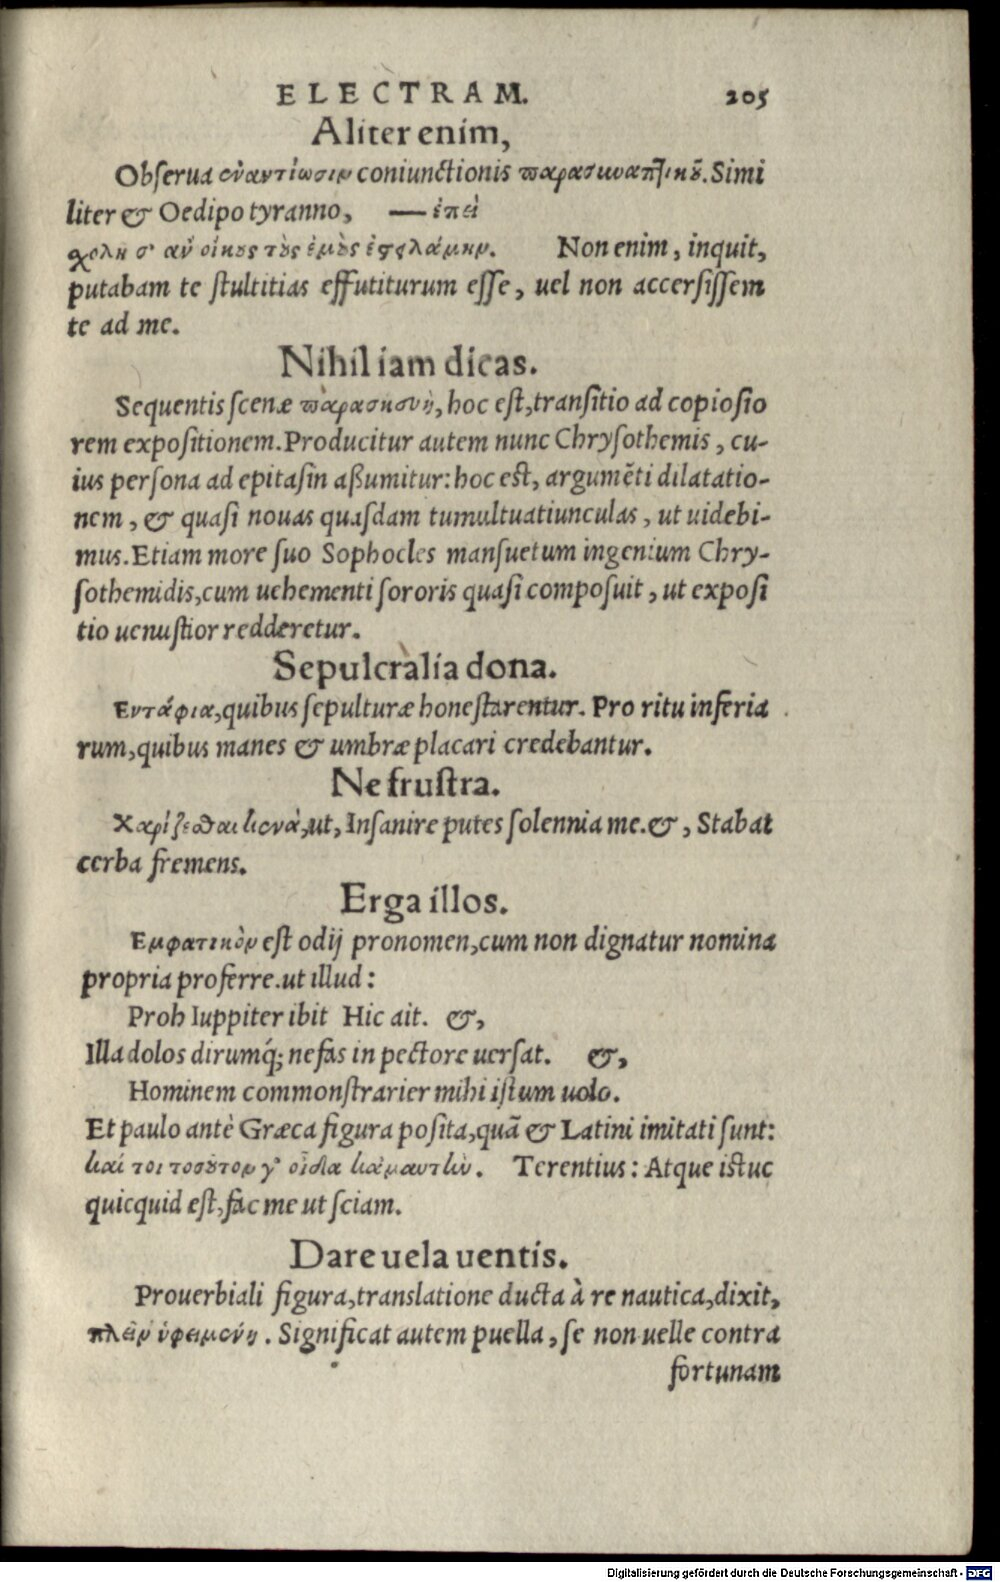 ELECTRAM. 205
Aliter enim,
Obserua ἐναντίωσιν coniunctionis παρασυναπτικοῦ. Simi
liter & Oedipo tyranno, — ἐπεὶ
σχολῇ σ' ἂν οἴκους τοὺς ἐμοὺς ἐστειλάμην. Non enim, inquit,
putabam te stultitias effutiturum esse, uel non accersissem
te ad me.
Nihil iam dicas.
Sequentis scenæ παρασκευὴ, hoc est, transitio ad copiosio
rem expositionem. Producitur autem nunc Chrysothemis, cu-
ius persona ad epitasin aßumitur: hoc est, argumẽti dilatatio-
nem, & quasi nouas quasdam tumultuatiunculas, ut uidebi-
mus. Etiam more suo Sophocles mansuetum ingenium Chry-
sothemidis, cum uehementi sororis quasi composuit, ut exposi
tio uenustior redderetur.
Sepulcralia dona.
Εντάφια, quibus sepulturæ honestarentur. Pro ritu inferia
rum, quibus manes & umbræ placari credebantur.
Ne frustra.
Χαρίζεσθαι κενὰ, ut, Insanire putes solennia me. &, Stabat
acerba fremens.
Erga illos.
Εμφατικὸν est odij pronomen, cum non dignatur nomina
propria proferre. ut illud:
Proh Iuppiter ibit Hic ait. &,
Illa dolos dirumq́; nefas in pectore uersat. &,
Hominem commonstrarier mihi istum uolo.
Et paulo antè Græca figura posita, quã & Latini imitati sunt:
καί τοι τοσοῦτον γ' οἶδα κἀμαυτὴν. Terentius: Atque istuc
quicquid est, fac me ut sciam.
Dare uela uentis.
Prouerbiali figura, translatione ducta à re nautica, dixit,
πλεῖν ὑφειμένῃ. Significat autem puella, se non uelle contra
fortunam
Digitalisierung gefördert durch die Deutsche Forschungsgemeinschaft - DFG